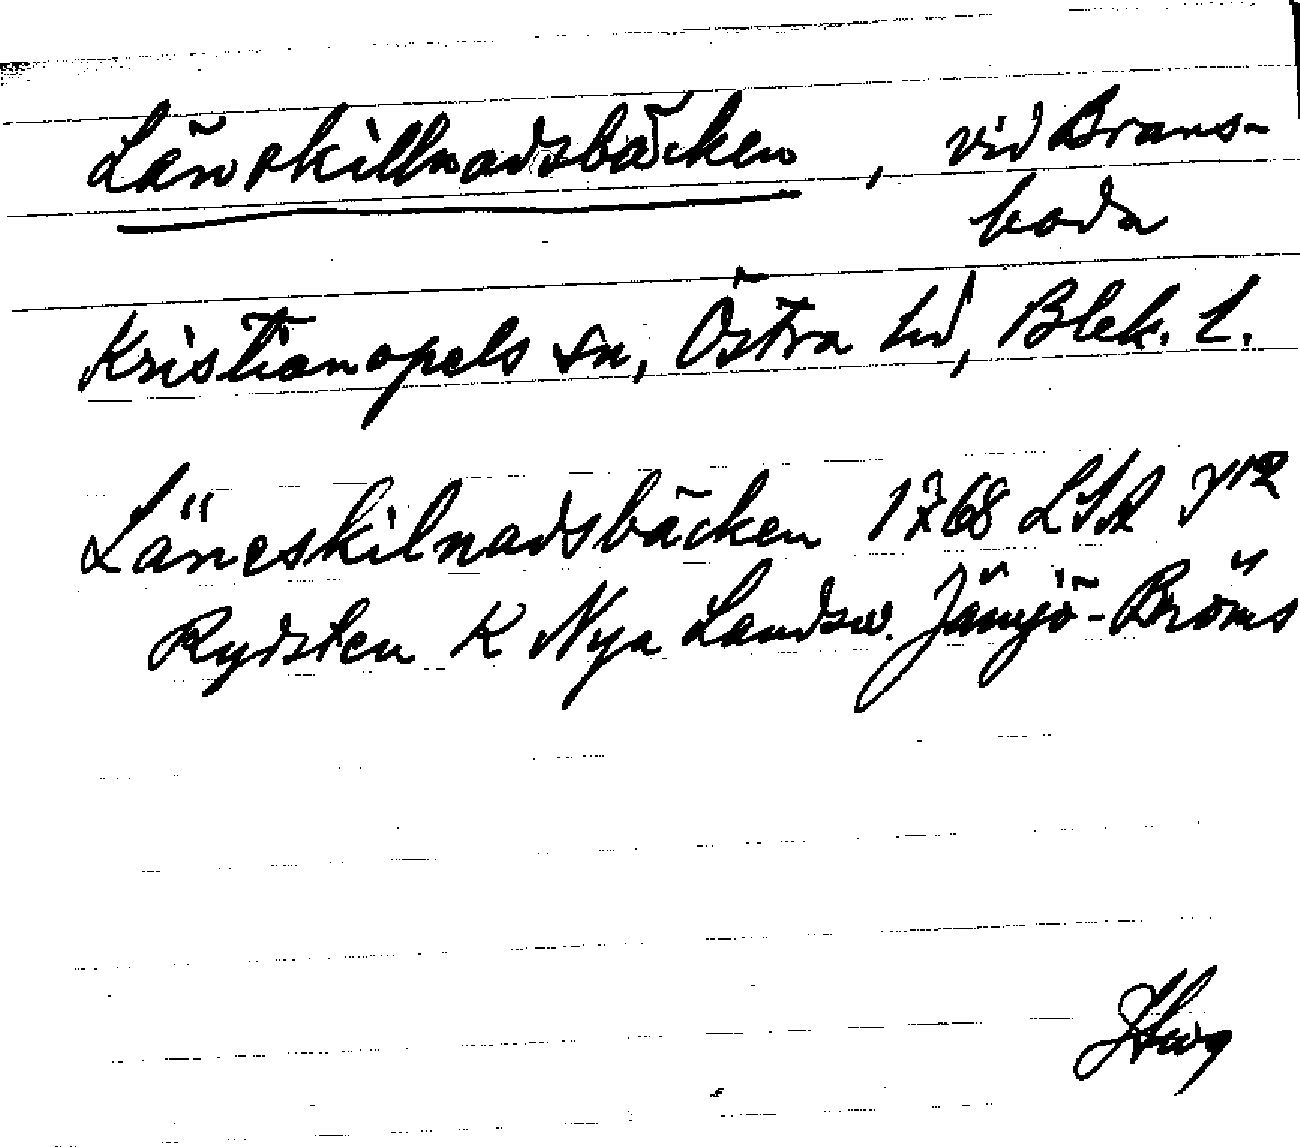 Länskillnadsbäcken, vid Brams-
boda
Kristianopels sn, Östra hd, Blek. l.
Läneskilnadsbäcken 1768 LSA
Rydsten K Nya Landsv. Jämjö-Bröms